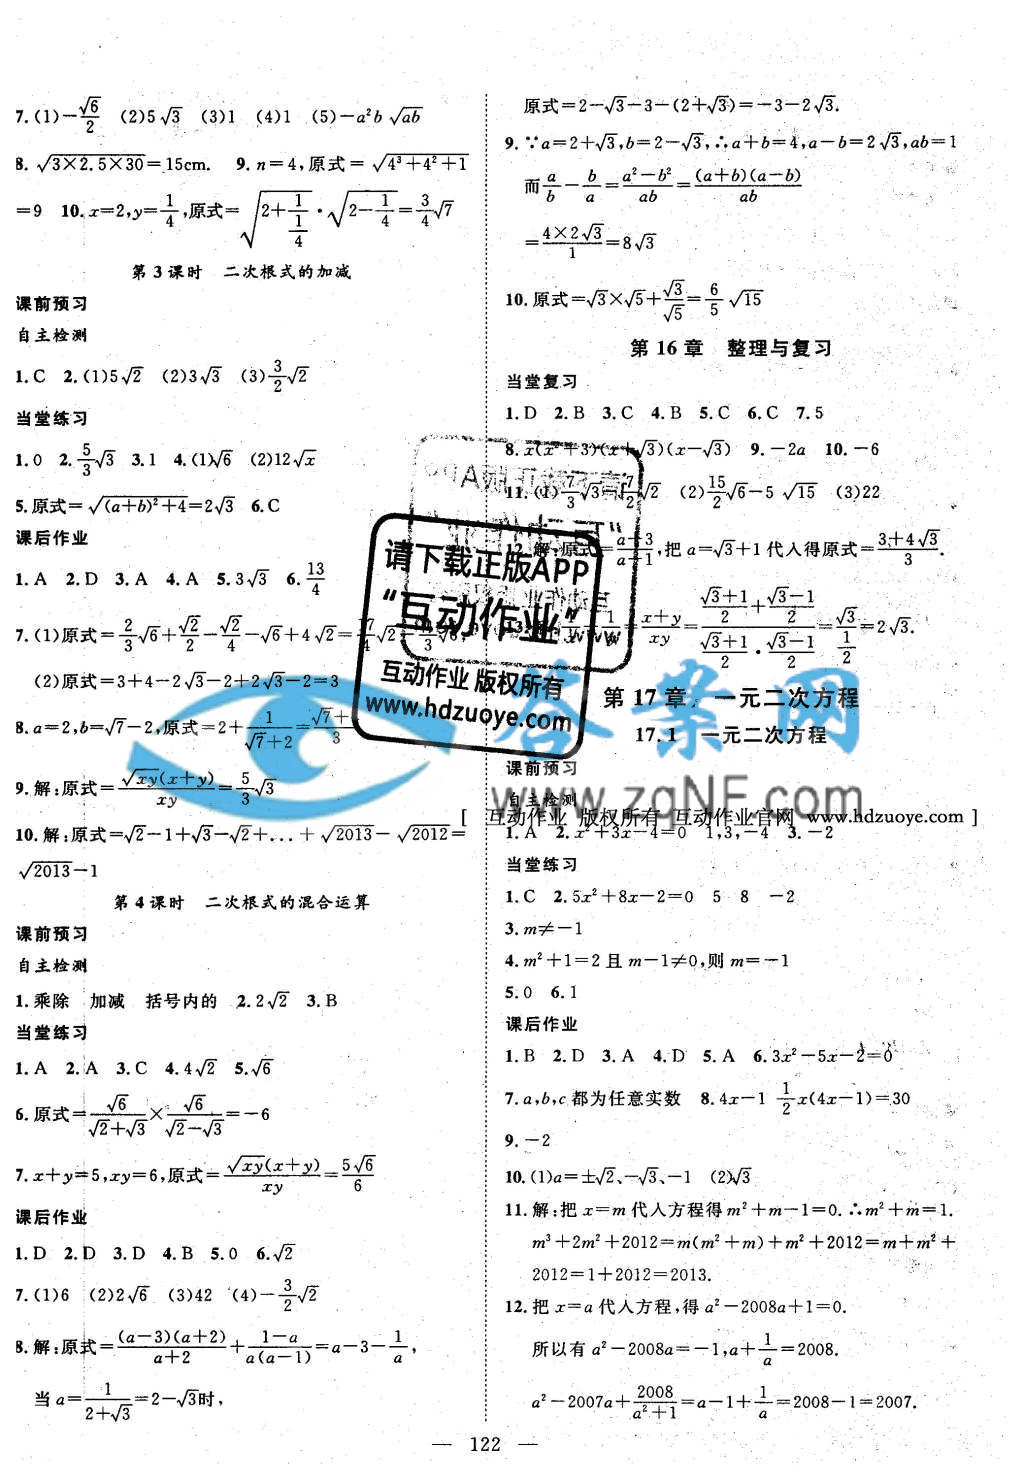 7.(1)-√6/2 (2)5√3 (3)1 (4)1 (5)-a²b√ab
8.√(3×2.5×30)=15cm. 9.n=4,原式=√(4³+4²+1)
=9 10.x=2,y=1/4,原式=√(2+1/(1/4))·√(2-1/4)=3/4√7
第3课时 二次根式的加减
课前预习
自主检测
1.C 2.(1)5√2 (2)3√3 (3)3/2√2
当堂练习
1.0 2.5/3√3 3.1 4.(1)√6 (2)12√x
5.原式=√((a+b)²+4)=2√3 6.C
课后作业
1.A 2.D 3.A 4.A 5.3√3 6.13/4
7.(1)原式=2/3√6+√2/2-√2/4-√6+4√2=
(2)原式=3+4-2√3-2+2√3-2=3
8.a=2,b=√7-2,原式=2+1/(√7+2)=
9.解:原式=√xy(x+y)/xy=5/3√3
10.解:原式=√2-1+√3-√2+...+√2013-√2012=
√2013-1
第4课时 二次根式的混合运算
课前预习
自主检测
1.乘除 加减 括号内的 2.2√2 3.B
当堂练习
1.A 2.A 3.C 4.4√2 5.√6
6.原式=√6/(√2+√3)×√6/(√2-√3)=-6
7.x+y=5,xy=6,原式=√xy(x+y)/xy=5√6/6
课后作业
1.D 2.D 3.D 4.B 5.0 6.√2
7.(1)6 (2)2√6 (3)42 (4)-3/2√2
8.解:原式=(a-3)(a+2)/(a+2)+(1-a)/(a(a-1))=a-3-1/a,
当a=1/(2+√3)=2-√3时,
原式=2-√3-3-(2+√3)=-3-2√3.
9.∵a=2+√3,b=2-√3,∴a+b=4,a-b=2√3,ab=1
而a/b-b/a=(a²-b²)/ab=(a+b)(a-b)/ab
=4×2√3/1=8√3
10.原式=√3×√5+√3/√5=6/5√15
第16章 整理与复习
当堂复习
1.D 2.B 3.C 4.B 5.C 6.C 7.5
8.x(x²+3)(x+√3)(x-√3) 9.-2a 10.-6
11.(1)7/3√3-7/2√2 (2)15/2√6-5√15 (3)22
12.解:原式=(a+3)/(a-1),把a=√3+1代人得原式=(3+4√3)/3.
1/x 1/y=(x+y)/xy=((√3+1)/2+(√3-1)/2)/((√3+1)/2·(√3-1)/2)=√3/(1/2)=2√3.
第17章 一元二次方程
17.1 一元二次方程
课前预习
自主检测
1.A 2.x²+3x-4=0 1,3,-4 3.-2
当堂练习
1.C 2.5x²+8x-2=0 5 8 -2
3.m≠-1
4.m²+1=2且m-1≠0,则m=-1
5.0 6.1
课后作业
1.B 2.D 3.A 4.D 5.A 6.3x²-5x-2=0
7.a,b,c都为任意实数 8.4x-1 1/2x(4x-1)=30
9.-2
10.(1)a=±√2、-√3、-1 (2)√3
11.解:把x=m代人方程得m²+m-1=0.∴m²+m=1.
m³+2m²+2012=m(m²+m)+m²+2012=m+m²+
2012=1+2012=2013.
12.把x=a代人方程,得a²-2008a+1=0.
所以有a²-2008a=-1,a+1/a=2008.
a²-2007a+2008/(a²+1)=a-1+1/a=2008-1=2007.
— 122 —
请下载正版APP
“互动作业”
互动作业 版权所有
www.hdzuoye.com
答案网
www.zqNF.com
[ 互动作业 版权所有 互动作业官网 www.hdzuoye.com ]